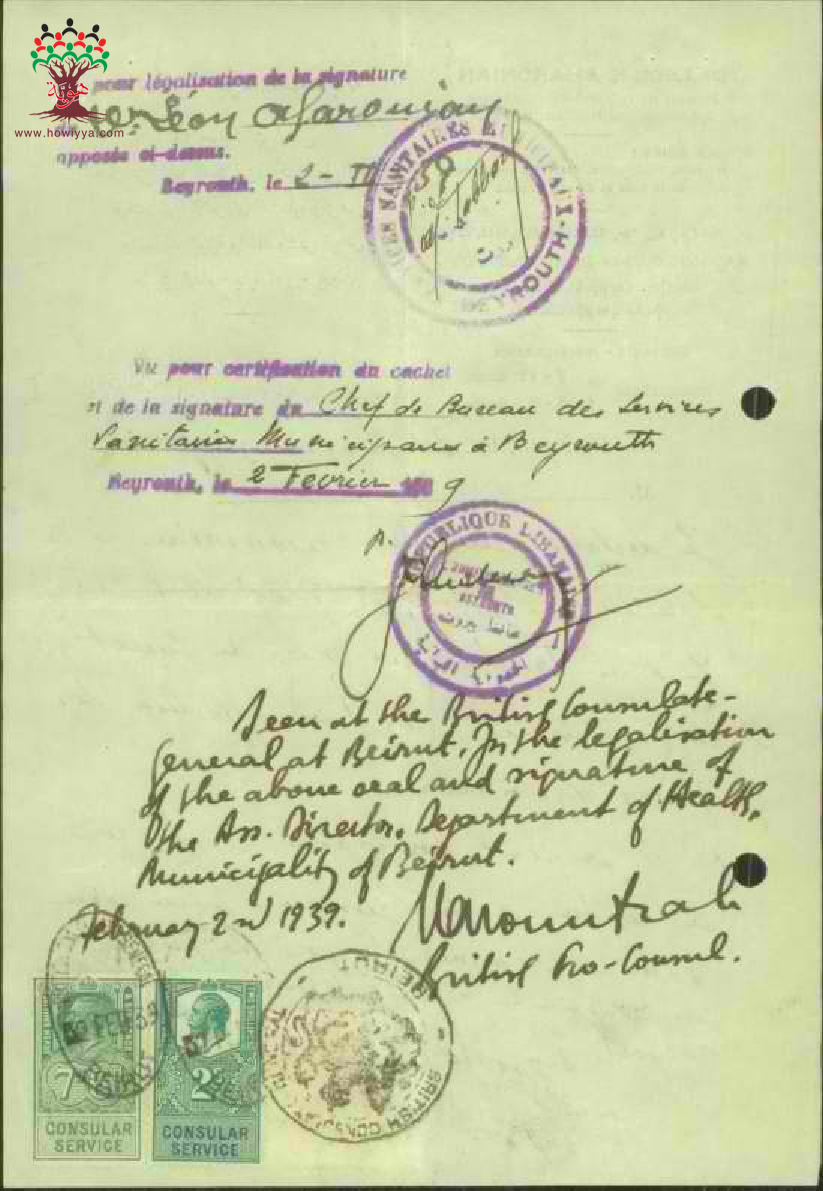 هوية
www.howiyya.com
pour légalisation de la signature
Dr. Léon Aharonian
apposée ci-dessus.
Beyrouth, le 2 - II
SERVICES SANITAIRES MUNICIPAUX
BEYROUTH
Vu pour certification du cachet
et de la signature du Chef de Bureau des Services
Sanitaires Municipaux à Beyrouth
Beyrouth, le 2 Fevrier 1939
p.
REPUBLIQUE LIBANAISE
BEYROUTH
بيروت
Seen at the British Consulate-
General at Beirut, for the legalisation
of the above seal and signature of
the Ass. Director, Department of Health,
Municipality of Beirut.
February 2nd 1939.
British Pro-Consul.
BEIRUT
BRITISH CONSULATE GENERAL
FEB 39
BEIRUT
7
2
CONSULAR
SERVICE
CONSULAR
SERVICE